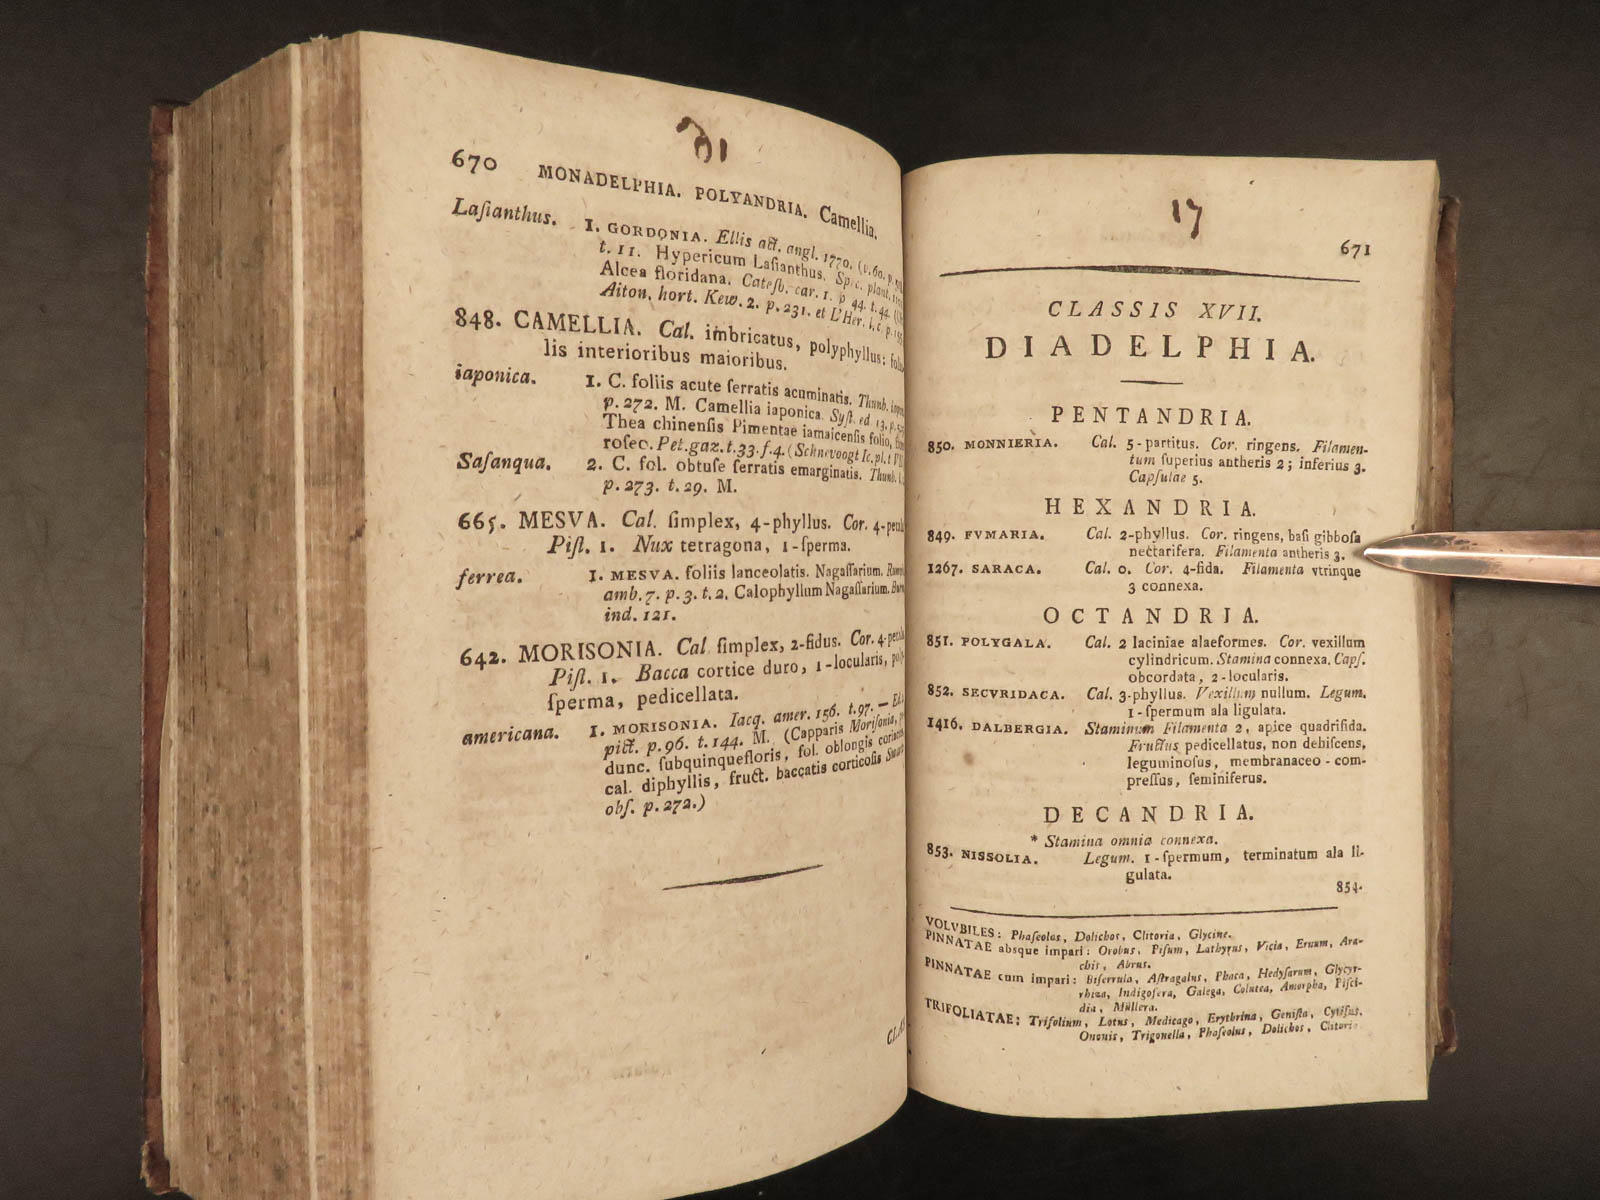 670 MONADELPHIA. POLYANDRIA. Camellia.
Laſianthus. 1. GORDONIA. Ellis act. angl. 1770. (v. 60. p.
t. 11. Hypericum Laſianthus. Spec. plant.
Alcea floridana. Cateſb. car. 1. p 44. t. 44.
Aiton. hort. Kew. 2. p. 231. et L'Her. l. c. p.
848. CAMELLIA. Cal. imbricatus, polyphyllus:
lis interioribus maioribus.
iaponica. 1. C. foliis acute ſerratis acuminatis. Thunb. iapon.
p. 272. M. Camellia iaponica. Syſt. ed 13. p.
Thea chinenſis Pimentae iamaicenſis folio,
roſeo. Pet. gaz. t. 33. f. 4. (Schnevoogt Ic. pl. t
Saſanqua. 2. C. fol. obtuſe ſerratis emarginatis. Thunb. l.
p. 273. t. 29. M.
665. MESVA. Cal. ſimplex, 4-phyllus. Cor. 4-petala
Piſt. 1. Nux tetragona, 1-ſperma.
ferrea. 1. MESVA. foliis lanceolatis. Nagaſſarium.
amb. 7. p. 3. t. 2. Calophyllum Nagaſſarium. Burm
ind. 121.
642. MORISONIA. Cal ſimplex, 2-fidus. Cor. 4-petala
Piſt. 1. Bacca cortice duro, 1-locularis, poly-
ſperma, pedicellata.
americana. 1. MORISONIA. Iacq. amer. 156. t. 97. — Ed.
pict. p. 96. t. 144. M. (Capparis Moriſonia,
dunc. ſubquinquefloris, fol. oblongis
cal. diphyllis, fruct. baccatis corticoſis
obſ. p. 272.)
17
671
CLASSIS XVII.
DIADELPHIA.
PENTANDRIA.
850. MONNIERIA. Cal. 5-partitus. Cor. ringens. Filamen-
tum ſuperius antheris 2; inferius 3.
Capſulae 5.
HEXANDRIA.
849. FVMARIA. Cal. 2-phyllus. Cor. ringens, baſi gibboſa
nectarifera. Filamenta antheris 3.
1267. SARACA. Cal. 0. Cor. 4-fida. Filamenta vtrinque
3 connexa.
OCTANDRIA.
851. POLYGALA. Cal. 2 laciniae alaeformes. Cor. vexillum
cylindricum. Stamina connexa. Capſ.
obcordata, 2-locularis.
852. SECVRIDACA. Cal. 3-phyllus. Vexillum nullum. Legum.
1-ſpermum ala ligulata.
1416. DALBERGIA. Staminum Filamenta 2, apice quadrifida.
Fructus pedicellatus, non dehiſcens,
leguminoſus, membranaceo-com-
preſſus, ſeminiferus.
DECANDRIA.
* Stamina omnia connexa.
853. NISSOLIA. Legum. 1-ſpermum, terminatum ala li-
gulata.
854.
VOLVBILES: Phaſeolus, Dolichos, Clitoria, Glycine.
PINNATAE absque impari: Orobus, Piſum, Lathyrus, Vicia, Ervum, Ara-
chis, Abrus.
PINNATAE cum impari: Biſerrula, Aſtragalus, Phaca, Hedyſarum, Glycyr-
rhiza, Indigofera, Galega, Colutea, Amorpha, Piſci-
dia, Müllera.
TRIFOLIATAE: Trifolium, Lotus, Medicago, Erythrina, Geniſta, Cytiſus,
Ononis, Trigonella, Phaſeolus, Dolichos, Clitoria